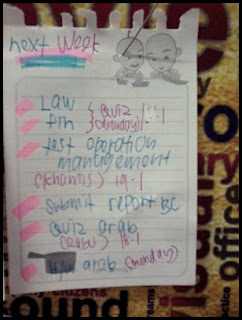 next week
Law } Quiz
fin } (monday)
test operation
management
(khamis) 19.1
submit report BC
Quiz arab
(rabu) 18.1
arab (monday)
office